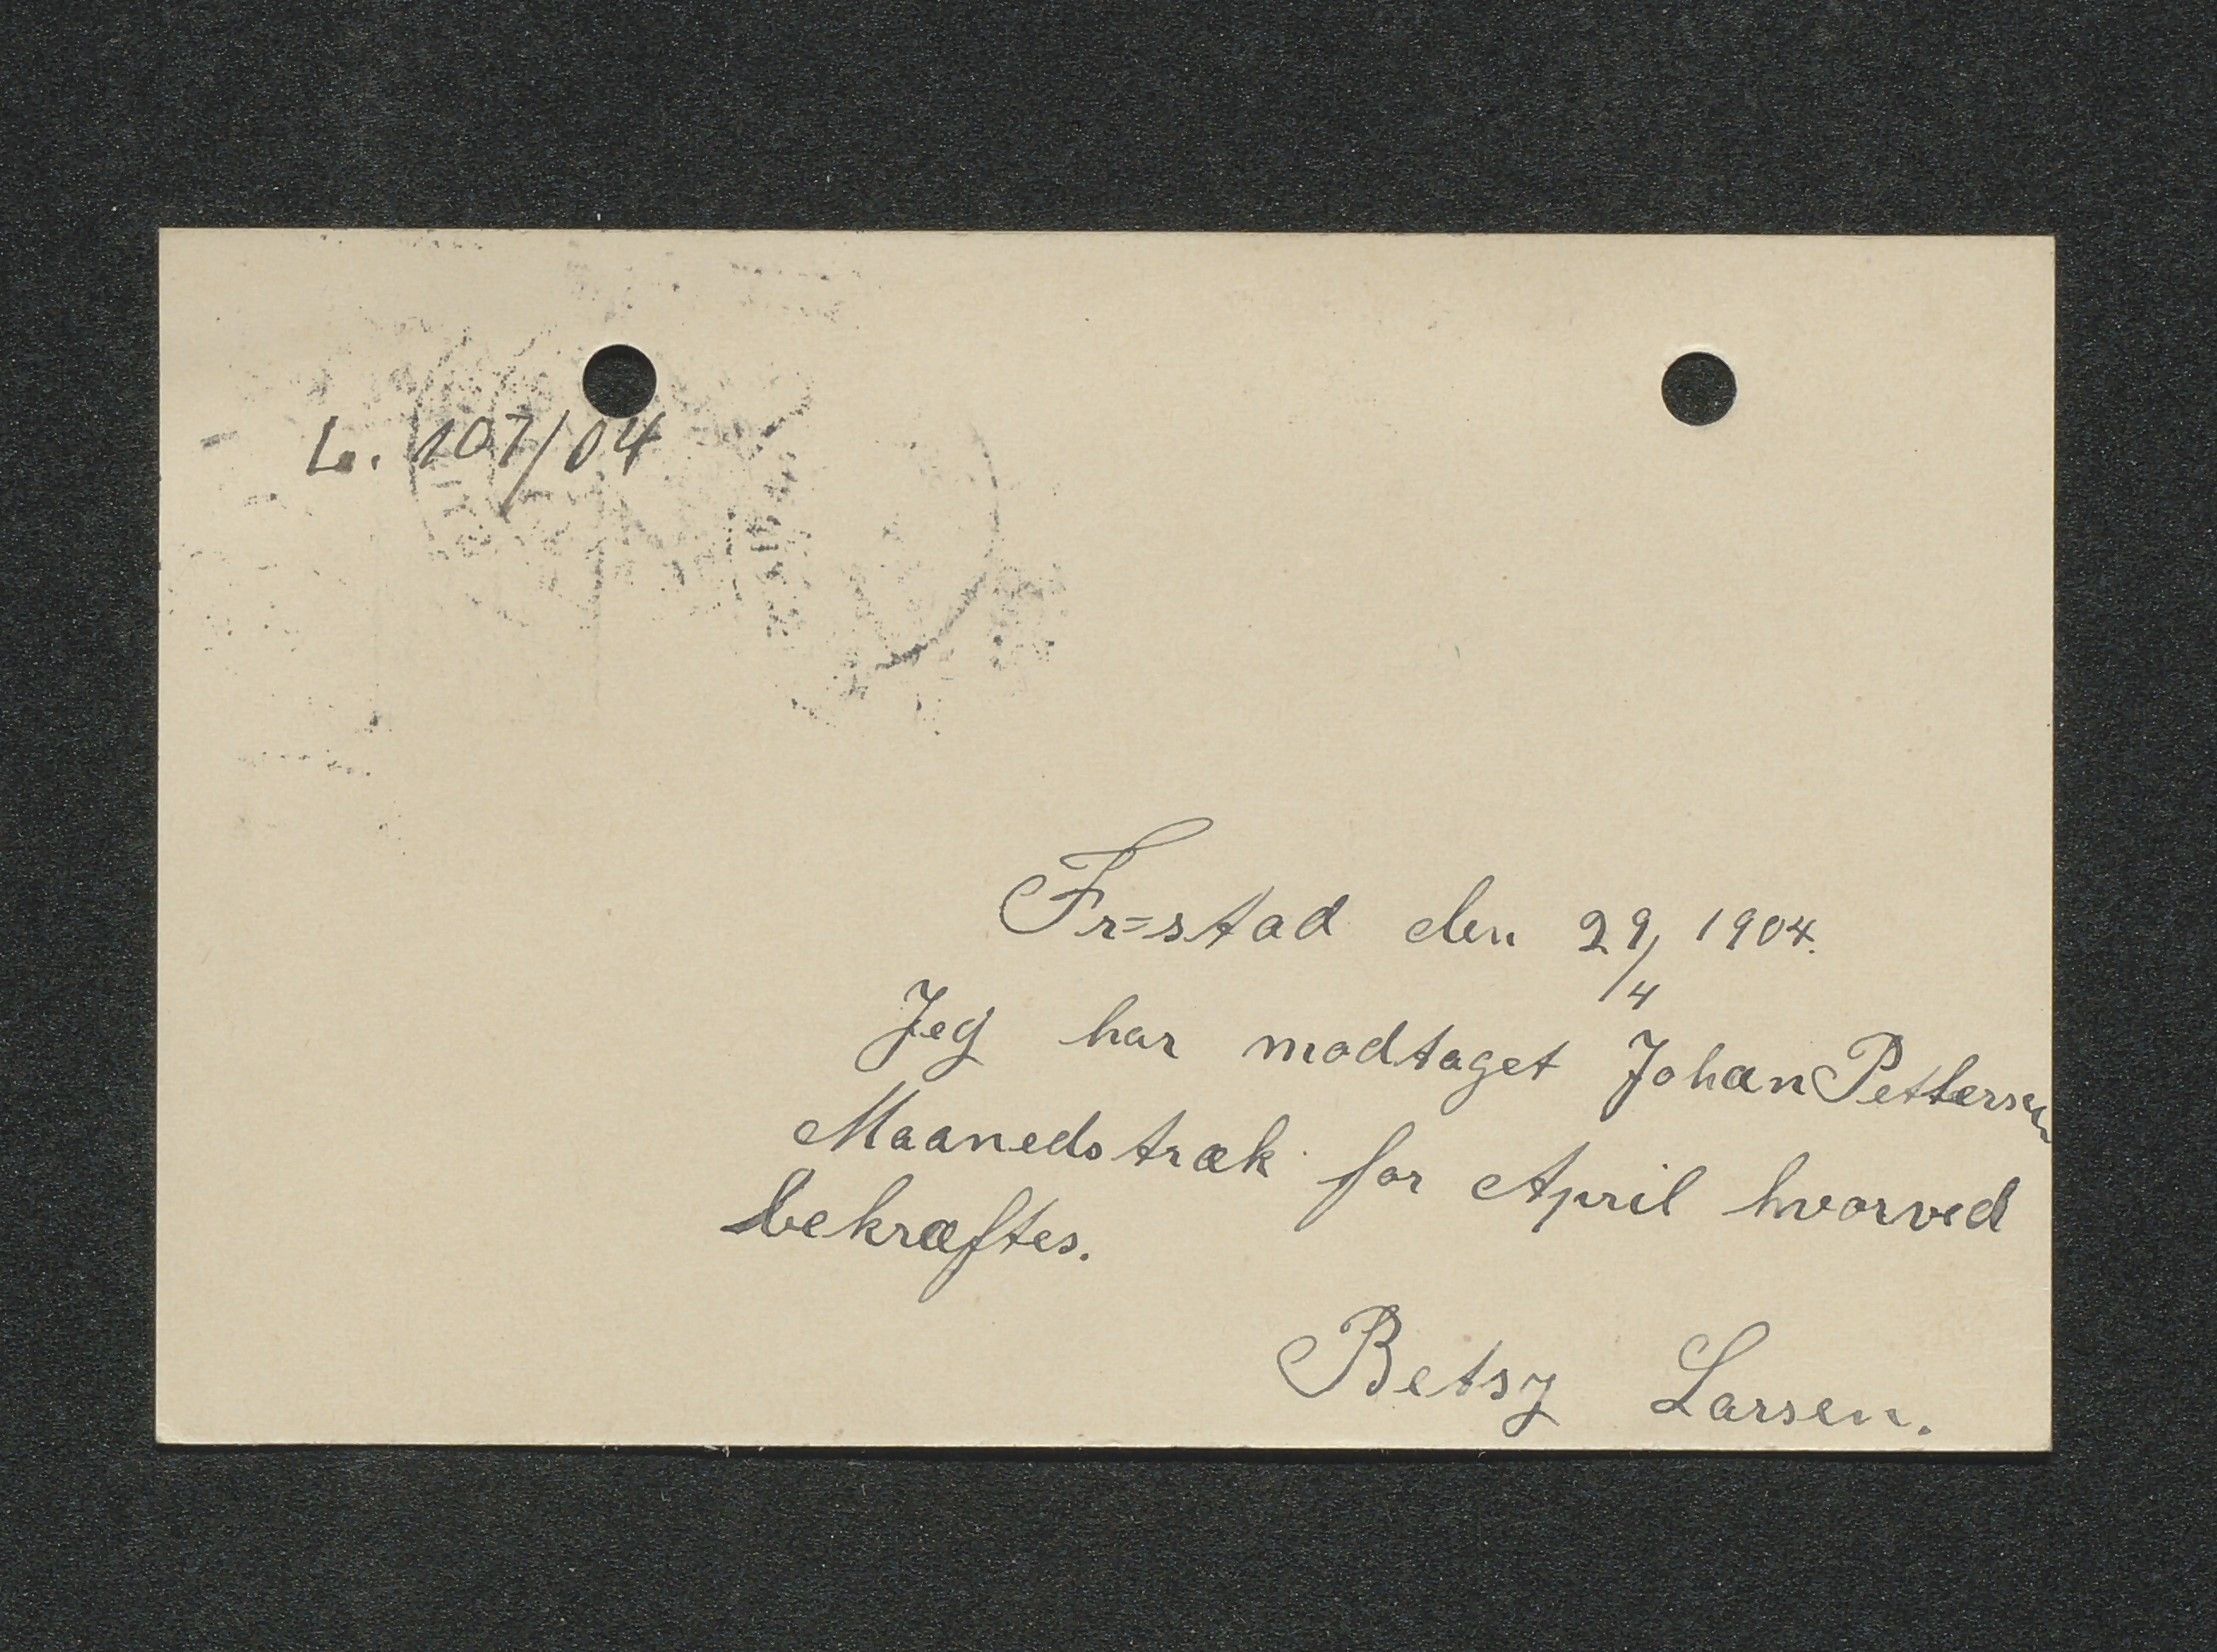 L. 107/04
Fr=stad den 29/4 1904.
Jeg har modtaget Johan Pettersen
Maanedstræk for April hvorved
bekræftes.
Betsy Larsen.